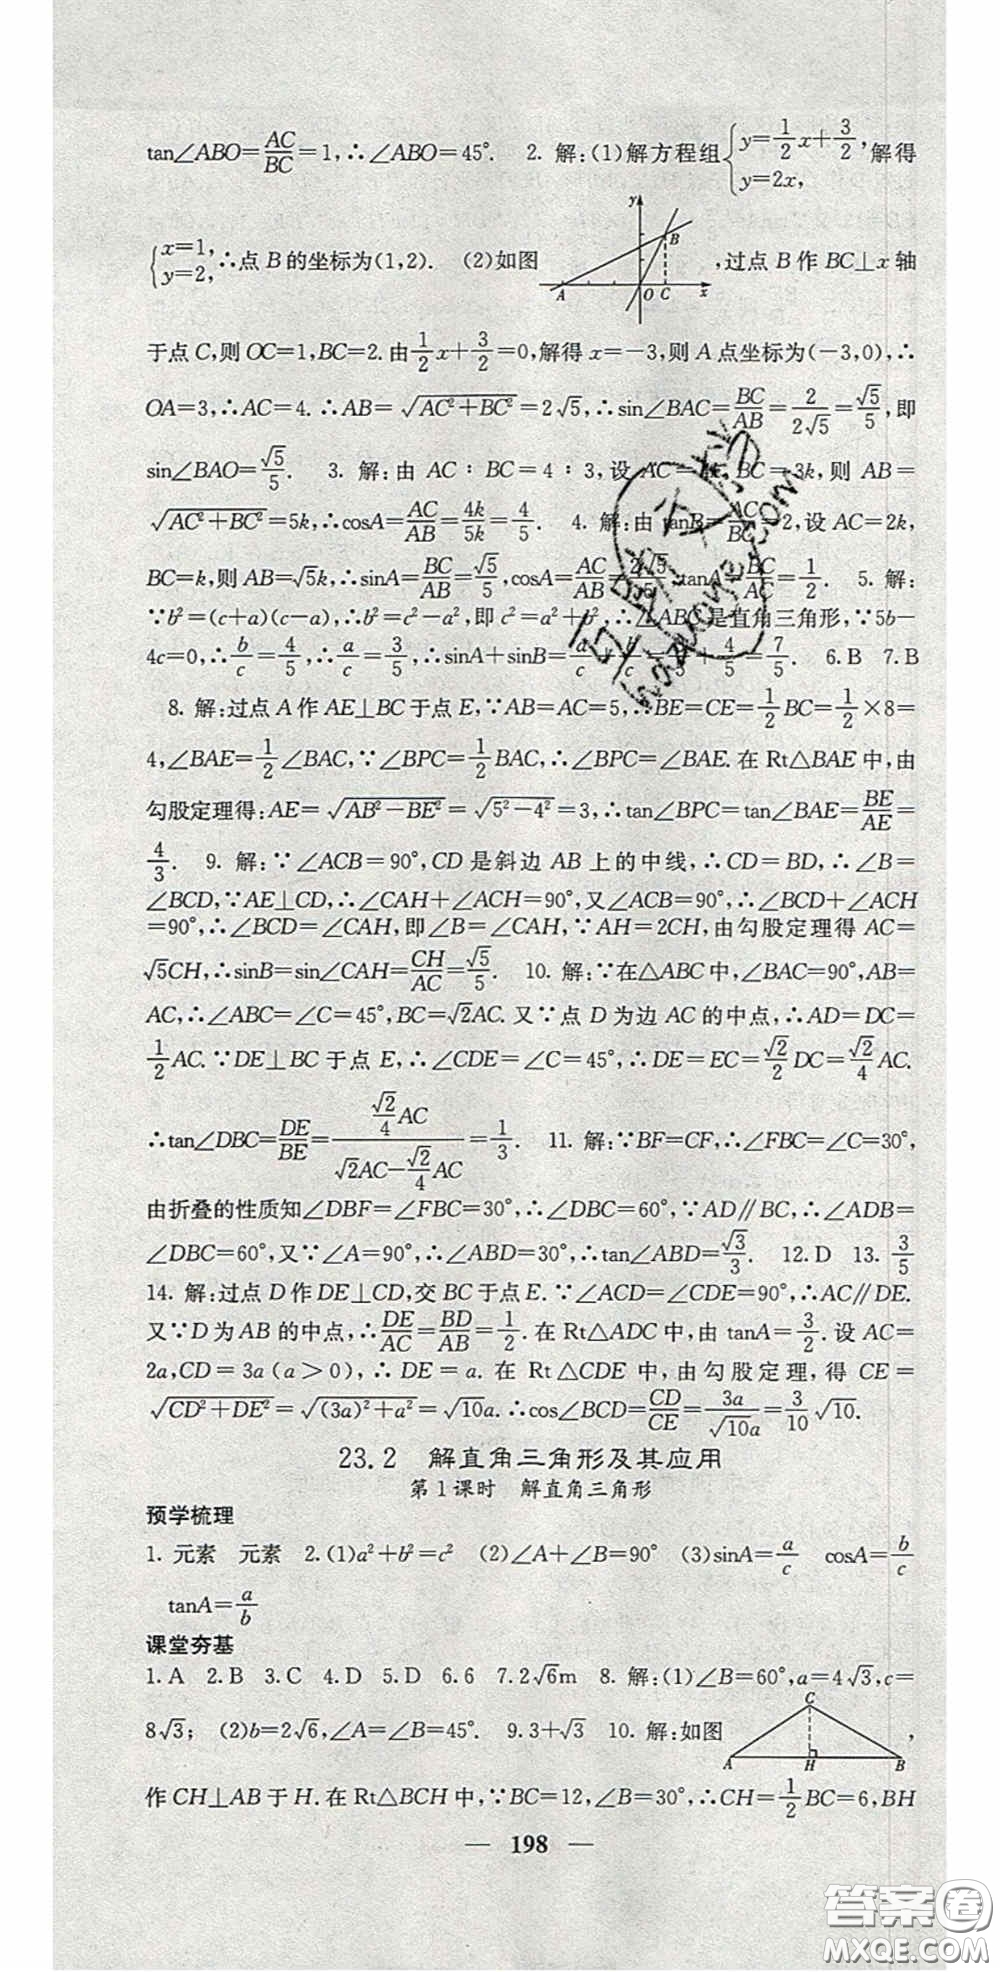 tan∠ABO=AC/BC=1,∴∠ABO=45°. 2. 解:(1)解方程组{y=1/2x+3/2, y=2x, 解得
{x=1, y=2, ∴点 B 的坐标为(1,2). (2)如图 y B A O C x ,过点 B 作 BC⊥x 轴
于点 C,则 OC=1,BC=2. 由1/2x+3/2=0,解得 x=-3,则 A 点坐标为(-3,0),∴
OA=3,∴AC=4. ∴AB=√(AC²+BC²)=2√5,∴sin∠BAC=BC/AB=2/(2√5)=√5/5,即
sin∠BAO=√5/5. 3. 解:由 AC∶BC=4∶3,设 AC=4k,BC=3k,则 AB=
√(AC²+BC²)=5k,∴cosA=AC/AB=4k/5k=4/5. 4. 解:由 tanB=AC/BC=2,设 AC=2k,
BC=k,则 AB=√5k,∴sinA=BC/AB=√5/5,cosA=AC/AB=2√5/5,tanA=BC/AC=1/2. 5. 解:
∵b²=(c+a)(c-a),∴b²=c²-a²,即 c²=a²+b²,∴△ABC 是直角三角形,∵5b-
4c=0,∴b/c=4/5,∴a/c=3/5,∴sinA+sinB=a/c+b/c=3/5+4/5=7/5. 6. B 7. B
8. 解:过点 A 作 AE⊥BC 于点 E,∵AB=AC=5,∴BE=CE=1/2BC=1/2×8=
4,∠BAE=1/2∠BAC,∵∠BPC=1/2BAC,∴∠BPC=∠BAE. 在 Rt△BAE 中,由
勾股定理得:AE=√(AB²-BE²)=√(5²-4²)=3,∴tan∠BPC=tan∠BAE=BE/AE=
4/3. 9. 解:∵∠ACB=90°,CD 是斜边 AB 上的中线,∴CD=BD,∴∠B=
∠BCD,∵AE⊥CD,∴∠CAH+∠ACH=90°,又∠ACB=90°,∴∠BCD+∠ACH
=90°,∴∠BCD=∠CAH,即∠B=∠CAH,∵AH=2CH,由勾股定理得 AC=
√5CH,∴sinB=sin∠CAH=CH/AC=√5/5. 10. 解:∵在△ABC 中,∠BAC=90°,AB=
AC,∴∠ABC=∠C=45°,BC=√2AC. 又∵点 D 为边 AC 的中点,∴AD=DC=
1/2AC. ∵DE⊥BC 于点 E,∴∠CDE=∠C=45°,∴DE=EC=√2/2DC=√2/4AC.
∴tan∠DBC=DE/BE=(√2/4AC)/(√2AC-√2/4AC)=1/3. 11. 解:∵BF=CF,∴∠FBC=∠C=30°,
由折叠的性质知∠DBF=∠FBC=30°,∴∠DBC=60°,∵AD∥BC,∴∠ADB=
∠DBC=60°,又∵∠A=90°,∴∠ABD=30°,∴tan∠ABD=√3/3. 12. D 13. 3/5
14. 解:过点 D 作 DE⊥CD,交 BC 于点 E. ∵∠ACD=∠CDE=90°,∴AC∥DE.
又∵D 为 AB 的中点,∴DE/AC=BD/AB=1/2. 在 Rt△ADC 中,由 tanA=3/2. 设 AC=
2a,CD=3a(a>0),∴DE=a. 在 Rt△CDE 中,由勾股定理,得 CE=
√(CD²+DE²)=√((3a)²+a²)=√10a. ∴cos∠BCD=CD/CE=3a/(√10a)=3/10√10.
23.2 解直角三角形及其应用
第 1 课时 解直角三角形
预学梳理
1. 元素 元素 2.(1)a²+b²=c² (2)∠A+∠B=90° (3)sinA=a/c cosA=b/c
tanA=a/b
课堂夯基
1. A 2. B 3. C 4. D 5. D 6. 6 7. 2√6m 8. 解:(1)∠B=60°,a=4√3,c=
8√3; (2)b=2√6,∠A=∠B=45°. 9. 3+√3 10. 解:如图 C A H B ,
作 CH⊥AB 于 H. 在 Rt△BCH 中,∵BC=12,∠B=30°,∴CH=1/2BC=6,BH
— 198 —
答案圈
MXQE.COM